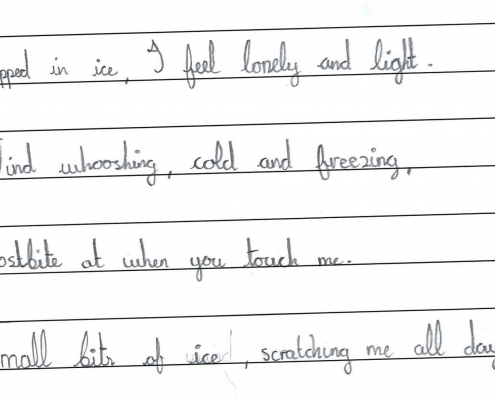 pped in ice, I feel lonely and light.
Wind whooshing, cold and freezing,
ostbite at when you touch me.
mall bits of ice, scratching me all day